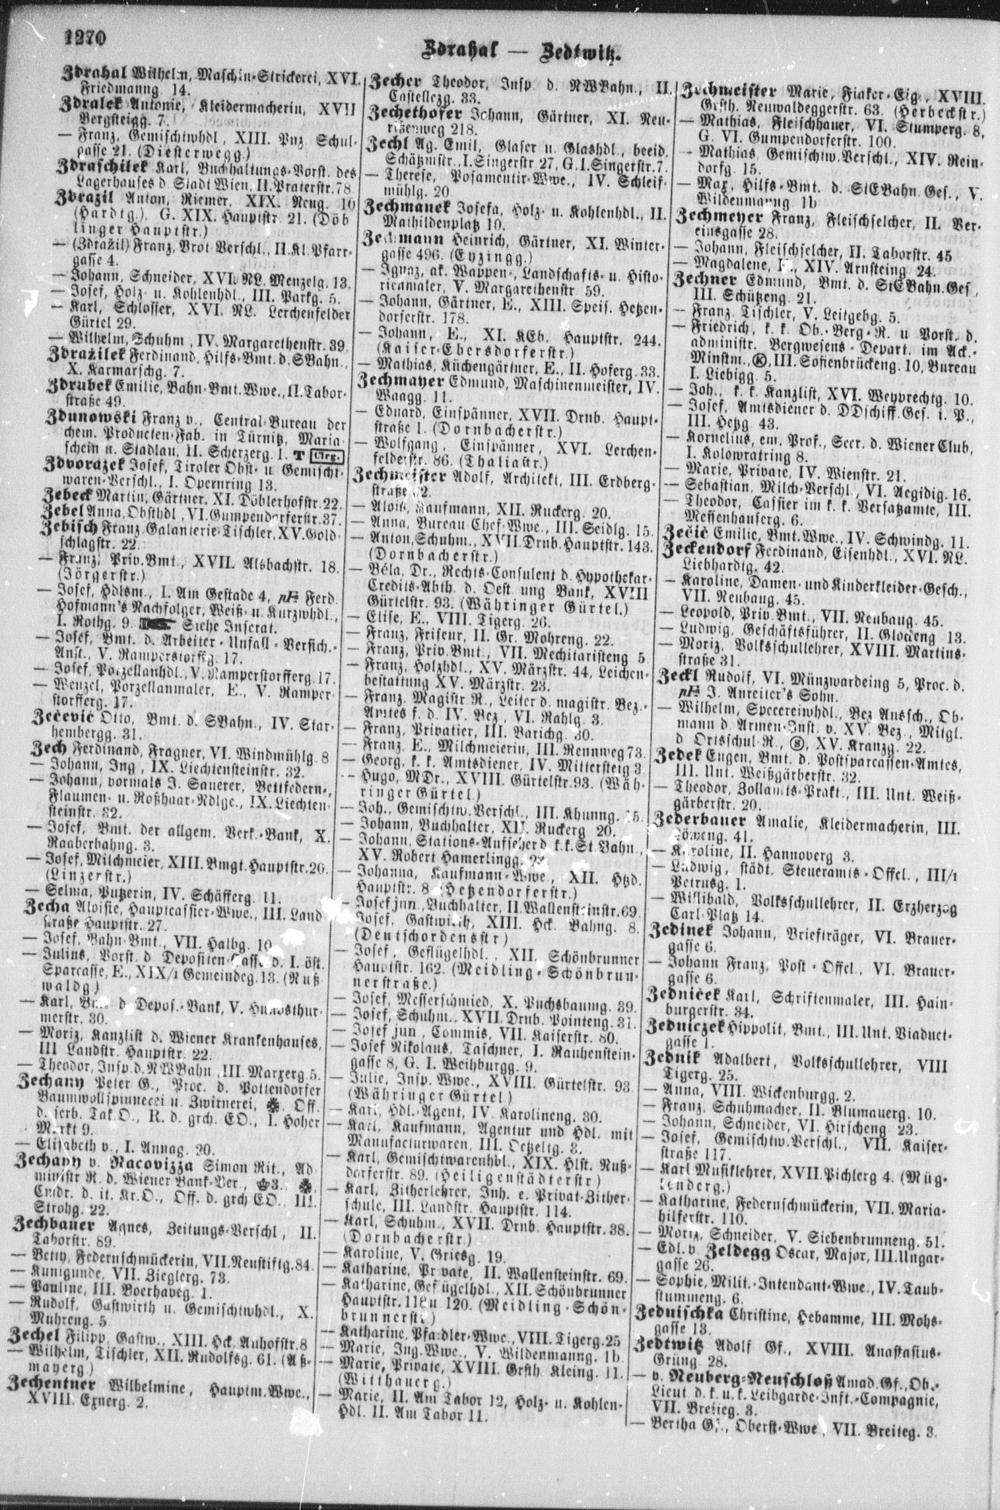 1270
Zdrahal — Zedtwitz.
Zdrahal Wilhelm, Maschin-Strickerei, XVI.
Friedmanng. 14.
Zdralek Antonie, Kleidermacherin, XVII
Bergsteigg. 7.
— Franz, Gemischtwhdl, XIII. Pnz Schul-
gasse 21. (Diesterwegg.)
Zdraschilek Karl, Buchhaltungs-Vorst. des
Lagerhauses d Stadt Wien, II. Praterstr. 78
Zdrazil Anton, Riemer, XIX. Neug. 10
(Hardtg.), G. XIX. Hauptstr. 21. (Döb
linger Hauptstr.)
— (Zdražil) Franz, Brot Verschl., II. Kl. Pfarr-
gasse 4.
— Johann, Schneider, XVI. NL. Menzelg. 13.
— Josef, Holz- u. Kohlenhdl., III. Parkg. 5.
— Karl, Schlosser, XVI. NL. Lerchenfelder
Gürtel 29.
— Wilhelm, Schuhm., IV. Margarethenstr. 39.
Zdražilek Ferdinand, Hilfs-Bmt. d. SBahn.,
X. Karmarschg. 7.
Zdrubek Emilie, Bahn-Bmt. Wwe., II. Tabor-
straße 49.
Zdunowski Franz v., Central-Bureau der
chem. Producten-Fab. in Türnitz, Maria
schein u. Stadlau, II. Scherzerg. 1. T Clrg.
Zdvorazek Josef, Tiroler Obst- u. Gemischt-
waren-Verschl., I. Opernring 13.
Zebeck Martin, Gärtner, XI. Döblerhofstr. 22.
Zebel Anna, Obsthdl., VI. Gumpendorferstr. 87.
Zebisch Franz, Galanterie-Tischler, XV. Gold-
schlagstr. 22
— Franz, Priv. Bmt., XVII. Alsbachstr. 18.
(Jörgerstr.)
— Josef, Hdlsm., I. Am Gestade 4, Ferd.
Hofmann's Nachfolger, Weiß- u. Kurzwhdl.,
I. Rothg. 9. Siehe Inserat.
— Josef, Bmt. d. Arbeiter-Unfall-Versich.-
Anst., V. Ramperstorffg. 17.
— Josef, Porzellanhdl., V. Ramperstorfferg. 17.
— Wenzel, Porzellanmaler, E., V. Ramper-
storfferg. 17.
Zečević Otto, Bmt. d. SBahn., IV. Star-
hembergg. 31.
Zech Ferdinand, Fragner, VI. Windmühlg. 8
— Johann, Ing., IX. Liechtensteinstr. 32.
— Johann, vormals J. Sauerer, Bettfedern-,
Flaumen- u. Roßhaar-Ndlge., IX. Liechten
steinstr. 32.
— Josef, Bmt. der allgem. Verk.-Bank, X.
Raaberbahng. 3.
— Josef, Milchmeier, XIII. Bmgt. Hauptstr. 20.
(Linzerstr.)
— Selma, Putzerin, IV. Schäfferg. 11.
Zecha Aloisie, Hauptcassier-Wwe., III. Land
straße Hauptstr. 27.
— Josef, Bahn-Bmt., VII. Halbg. 10
— Julius, Vorst. d Depositen-Casse d. I. öst.
Sparcasse, E., XIX/1 Gemeindeg. 13. (Ruß-
waldg)
— Karl, d Depos.-Bank, V. Hundsthur-
merstr. 30.
— Moriz, Kanzlist d. Wiener Krankenhauses,
III Landstr. Hauptstr. 22.
— Theodor, Insp. d. NWBahn, III. Marxerg. 5.
Zechany Peter G., Proc. d. Pottendorfer
Baumwollspinnerei u. Zwirnerei, Off.
d. serb. Tak. O., R. d. grch. EO., I. Hoher
Markt 9.
— Elisabeth v., I. Annag. 20.
Zechany v. Racovizza Simon Rit., Ad
ministr R. d. Wiener Bank-Ver., 3.,
Cmdr. d. it. Kr. O., Off. d. grch EO., III.
Strohg. 22.
Zechbauer Agnes, Zeitungs-Verschl., II.
Taborstr. 89.
— Betty, Federnschmückerin, VII. Neustiftg. 84.
— Kunigunde, VII. Zieglerg. 73.
— Pauline, III. Boerhaveg. 1.
— Rudolf, Gastwirth u. Gemischtwhdl., X.
Muhreng. 5
Zechel Filipp, Gastw., XIII. Hck. Auhofstr. 8
— Wilhelm, Tischler, XII. Rudolfsg. 61. (Aß-
mayerg.)
Zechentner Wilhelmine, Hauptm. Wwe.,
XVIII. Exnerg. 2.
Zecher Theodor, Insp d. NWBahn, II.
Castellezg. 33.
Zechethofer Johann, Gärtner, XI. Neu-
rißenweg 218.
Zechl Ag. Emil, Glaser u. Glashdl., beeid.
Schätzmstr., I. Singerstr 27, G. I. Singerstr. 7.
— Therese, Posamentir-Wwe., IV. Schleif-
mühlg. 20
Zechmanek Josefa, Holz- u. Kohlenhdl., II.
Mathildenplatz 10.
Zechmann Heinrich, Gärtner, XI. Winter-
gasse 496. (Eyzingg.)
— Ignaz, ak. Wappen-, Landschafts- u. Histo-
rienmaler, V. Margarethenstr 59.
— Johann, Gärtner, E., XIII. Speis. Hetzen-
dorferstr. 178.
— Johann, E., XI. KEb. Hauptstr. 244.
(Kaiser-Ebersdorferstr.)
— Mathias, Küchengärtner, E., II. Hoferg. 33.
Zechmayer Edmund, Maschinenmeister, IV.
Waagg. 11.
— Eduard, Einspänner, XVII. Drnb. Haupt-
straße 1. (Dornbacherstr.)
— Wolfgang, Einspänner, XVI. Lerchen-
felderstr. 86. (Thaliastr.)
Zechmeister Adolf, Architekt, III. Erdberg-
straße 2.
— Alois, Kaufmann, XII. Ruckerg. 20.
— Anna, Bureau Chef-Wwe., III. Seidlg. 15.
— Anton, Schuhm., XVII. Drnb. Hauptstr. 143.
(Dornbacherstr.)
— Béla, Dr., Rechts-Consulent d. Hypothekar-
Credits-Abth. d. Oest ung Bank, XVIII
Gürtelstr. 93. (Währinger Gürtel.)
— Elise, E., VIII. Tigerg. 26.
— Franz, Friseur, II. Gr. Mohreng. 22.
— Franz, Priv. Bmt., VII. Mechitaristeng 5
— Franz, Holzhdl., XV. Märzstr. 44, Leichen-
bestattung XV. Märzstr. 23.
— Franz, Magistr R., Leiter d. magistr. Bez.-
Amtes f. d. IV. Bez., VI. Rahlg. 3.
— Franz, Privatier, III. Barichg. 30.
— Franz, E., Milchmeierin, III. Rennweg 73.
— Georg, k. k. Amtsdiener, IV. Mittersteig 3
— Hugo, MDr., XVIII. Gürtelstr. 93. (Wäh-
ringer Gürtel.)
— Joh., Gemischtw. Verschl., III. Khunng. 15.
— Johann, Buchhalter, XII. Ruckerg 20.
— Johann, Stations-Aufseher d k. k. St Bahn.,
XV. Robert Hamerlingg.
— Johanna, Kaufmann-Wwe., XII. Htzd.
Hauptstr. 8 (Hetzendorferstr.)
— Josef jun., Buchhalter, II. Wallensteinstr. 69.
— Josef, Gastwirth, XIII. Hck. Bahng. 8.
(Deutschordensstr)
— Josef, Geflügelhdl., XII. Schönbrunner
Hauptstr. 162. (Meidling-Schönbrun-
nerstraße.)
— Josef, Messerschmied, X. Puchsbaumg. 39.
— Josef, Schuhm., XVII. Drnb. Pointeng. 31.
— Josef jun., Commis, VII. Kaiserstr. 80.
— Josef Nikolaus, Taschner, I. Rauhenstein-
gasse 8, G. I. Weihburgg. 9.
— Julie, Insp. Wwe., XVIII. Gürtelstr. 93
(Währinger Gürtel)
— Karl, Hdl.-Agent, IV. Karolineng. 30.
— Karl, Kaufmann, Agentur und Hdl. mit
Manufacturwaren, III. Oetzeltg. 3.
— Karl, Gemischtwarenhdl., XIX. Hlst. Nuß-
dorferstr. 89. (Heiligenstädterstr)
— Karl, Zitherlehrer, Inh. e. Privat-Zither-
schule, III. Landstr. Hauptstr. 114.
— Karl, Schuhm., XVII. Drnb. Hauptstr. 38.
(Dornbacherstr.)
— Karoline, V. Griesg. 19.
— Katharine, Private, II. Wallensteinstr. 69.
— Katharine, Geflügelhdl., XII. Schönbrunner
Hauptstr. 118 u 120. (Meidling-Schön-
brunnerstr.)
— Katharine, Pfaidler-Wwe., VIII. Tigerg. 25
— Marie, Ing. Wwe., V. Wildenmanng. 1b.
— Marie, Private, XVIII. Grsth. Kleing. 11.
(Witthauerg.)
— Marie, II. Am Tabor 12, Holz- u. Kohlen-
Hdl. II. Am Tabor 11.
Zechmeister Marie, Fiaker-Eig., XVIII.
Grsth. Neuwaldeggerstr. 63. (Herbeckstr.)
— Mathias, Fleischhauer, VI. Stumperg. 8,
G. VI. Gumpendorferstr. 100.
— Mathias, Gemischtw. Verschl., XIV. Rein-
dorfg. 15.
— Max, Hilfs-Bmt. d. StEBahn Ges., V.
Wildenmanng. 1b
Zechmeyer Franz, Fleischselcher, II. Ver-
einsgasse 28.
— Johann, Fleischselcher, II. Taborstr. 45
— Magdalene, XIV. Arnsteing 24.
Zechner Edmund, Bmt. d. StEBahn. Ges,
III. Schützeng. 21.
— Franz, Tischler, V. Leitgebg. 5.
— Friedrich, k. k. Ob.-Berg-R. u. Vorst. d.
administr. Bergwesens-Depart. im Ack.-
Minstm., III. Sofienbrückeng. 10, Bureau
I. Liebigg. 5.
— Joh., k. k. Kanzlist, XVI. Weyprechtg. 10.
— Josef, Amtsdiener d. DDschiff. Ges. i. P.,
III. Hetzg. 43.
— Kornelius, em. Prof., Secr. d. Wiener Club,
I. Kolowratring 8.
— Marie, Private, IV. Wienstr. 21.
— Sebastian, Milch-Verschl., VI. Aegidig. 16.
— Theodor, Cassier im k. k. Versatzamte, III.
Messenhauserg. 6.
Zečić Emilie, Bmt. Wwe., IV. Schwindg. 11.
Zeckendorf Ferdinand, Eisenhdl., XVI. NL.
Liebhardtg. 42.
— Karoline, Damen- und Kinderkleider-Gesch.,
VII. Neubaug. 45.
— Leopold, Priv. Bmt., VII. Neubaug. 45.
— Ludwig, Geschäftsführer, II. Glockeng 13.
— Moriz, Volksschullehrer, XVIII. Martins-
straße 31.
Zeckl Rudolf, VI. Münzwardeing 5, Proc. d.
J. Anreiter's Sohn.
— Wilhelm, Specereiwhdl., Bez Aussch., Ob-
mann d. Armen-Inst. v. XV. Bez., Mitgl.
d Ortsschul-R., XV. Kranzg. 22.
Zedek Eugen, Bmt. d. Postsparcassen-Amtes,
III. Unt. Weißgärberstr. 32.
— Theodor, Zollamts-Prakt., III. Unt. Weiß-
gärberstr. 20.
Zederbauer Amalie, Kleidermacherin, III.
Löweng. 41.
— Karoline, II. Hannoverg 3.
— Ludwig, städt. Steueramts-Offcl., III/1
Petrusg. 1.
— Willibald, Volksschullehrer, II. Erzherzog
Carl-Platz 14.
Zedinek Johann, Briefträger, VI. Brauer-
gasse 6.
— Johann Franz, Post-Offcl., VI. Brauer-
gasse 6.
Zedniček Karl, Schriftenmaler, III. Hain-
burgerstr. 34.
Zedniczek Hippolit, Bmt., III. Unt. Viaduct-
gasse 1.
Zednik Adalbert, Volksschullehrer, VIII
Tigerg. 25.
— Anna, VIII. Wickenburgg. 2.
— Franz, Schuhmacher, II. Blumauerg. 10.
— Johann, Schneider, VI. Hirscheng 23.
— Josef, Gemischtw. Verschl., VII. Kaiser-
straße 117.
— Karl Musiklehrer, XVII. Pichlerg 4. (Müg-
lenderg.)
— Katharine, Federnschmückerin, VII. Maria-
hilferstr. 110.
— Moriz, Schneider, V. Siebenbrunneng. 51.
— Edl. v. Zeldegg Oscar, Major, III. Ungar-
gasse 26.
— Sophie, Milit.-Intendant-Wwe., IV. Taub-
stummeng. 6.
Zednischka Christine, Hebamme, III. Mohs-
gasse 13.
Zedtwitz Adolf Gf., XVIII. Anastasius-
Grüng. 28.
— v. Neuberg-Neuschloß Amad. Gf., Ob.-
Lieut d. k. u. k. Leibgarde-Inft.-Compagnie,
VII. Breiteg. 3.
— Bertha G., Oberst-Wwe, VII. Breiteg. 3.